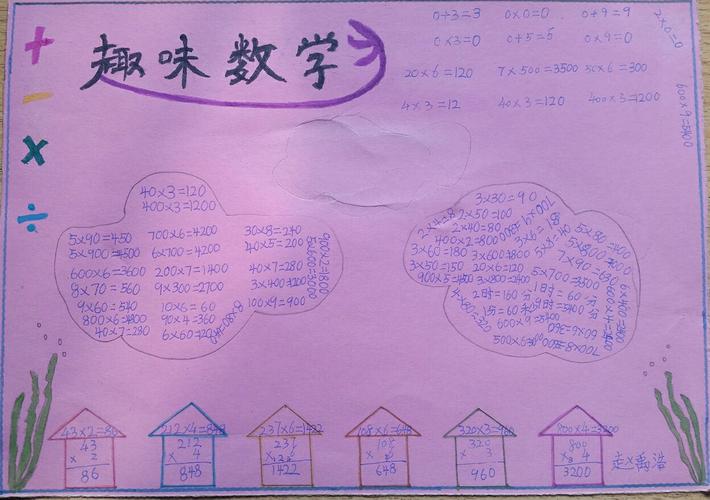 趣味数学
+
−
×
÷
0+3=3 0×0=0 0+9=9
0×3=0 0+5=5 0×9=0
20×6=120 7×500=3500 50×6=300
4×3=12 40×3=120 400×3=1200
600×9=5400
40×3=120
400×3=1200
5×90=450 700×6=4200 30×8=240
5×900=4500 6×700=4200 40×5=200
600×6=3600 200×7=1400 40×7=280
8×70=560 9×300=2700 3×400=1200
9×60=540 10×6=60 100×9=900
800×6=4800 90×4=360
40×7=280 6×60=120
900×2=1800
5×600=3000
3×30=90
2×4=8 2×50=100
2×40=80
400×2=800 3×6=18
3×60=180 3×600=1800
3×50=150 20×6=120
900×5=4500 3×800=2400
5×80=400
5×8=40 5×800=4000
7×90=630
5×700=3500
1时=60分
600×9=5400
60×6=360
43×2=86 212×4=848 237×6=1422 108×6=648 320×3=960 800×4=3200
43 212 237 108 320 800
×2 ×4 ×6 ×6 ×3 ×4
86 848 1422 648 960 3200